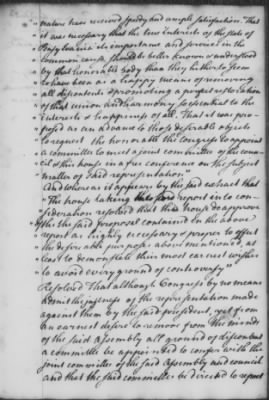 nature have received speedy and ample satisfaction. That
it was necessary that the true interests of the state of
Pensylvania its importance and services in the
common cause, should be better known & understood
by that honorable body than they hitherto seem
to have been as a happy means of removing
all discontents & promoting a perfect restoration
of that union and harmony so essential to the
interests & happiness of all. That it was pro-
posed as an advance to those desirable objects
to request the honorable the Congress to appoint
a committee to meet a joint committee of the coun-
cil & this house in a free conference on the subject
matter of said representation"
And whereas it appears by the said extract that
"The house taking the said report into con-
sideration resolved that this house do approve
of the said proposal contained in the above
report as highly necessary & proper to effect
the desireable purposes above mentioned, at
least to demonstrate their most earnest wishes
to avoid every ground of controversy"
Resolved That although Congress by no means
admit the justness of the representation made
against them by the said president, yet from
an earnest desire to remove from the minds
of the said Assembly all ground of discontent
a committee be appointed to confer with the
joint committee of the said Assembly and council
and that the said committee be directed to report